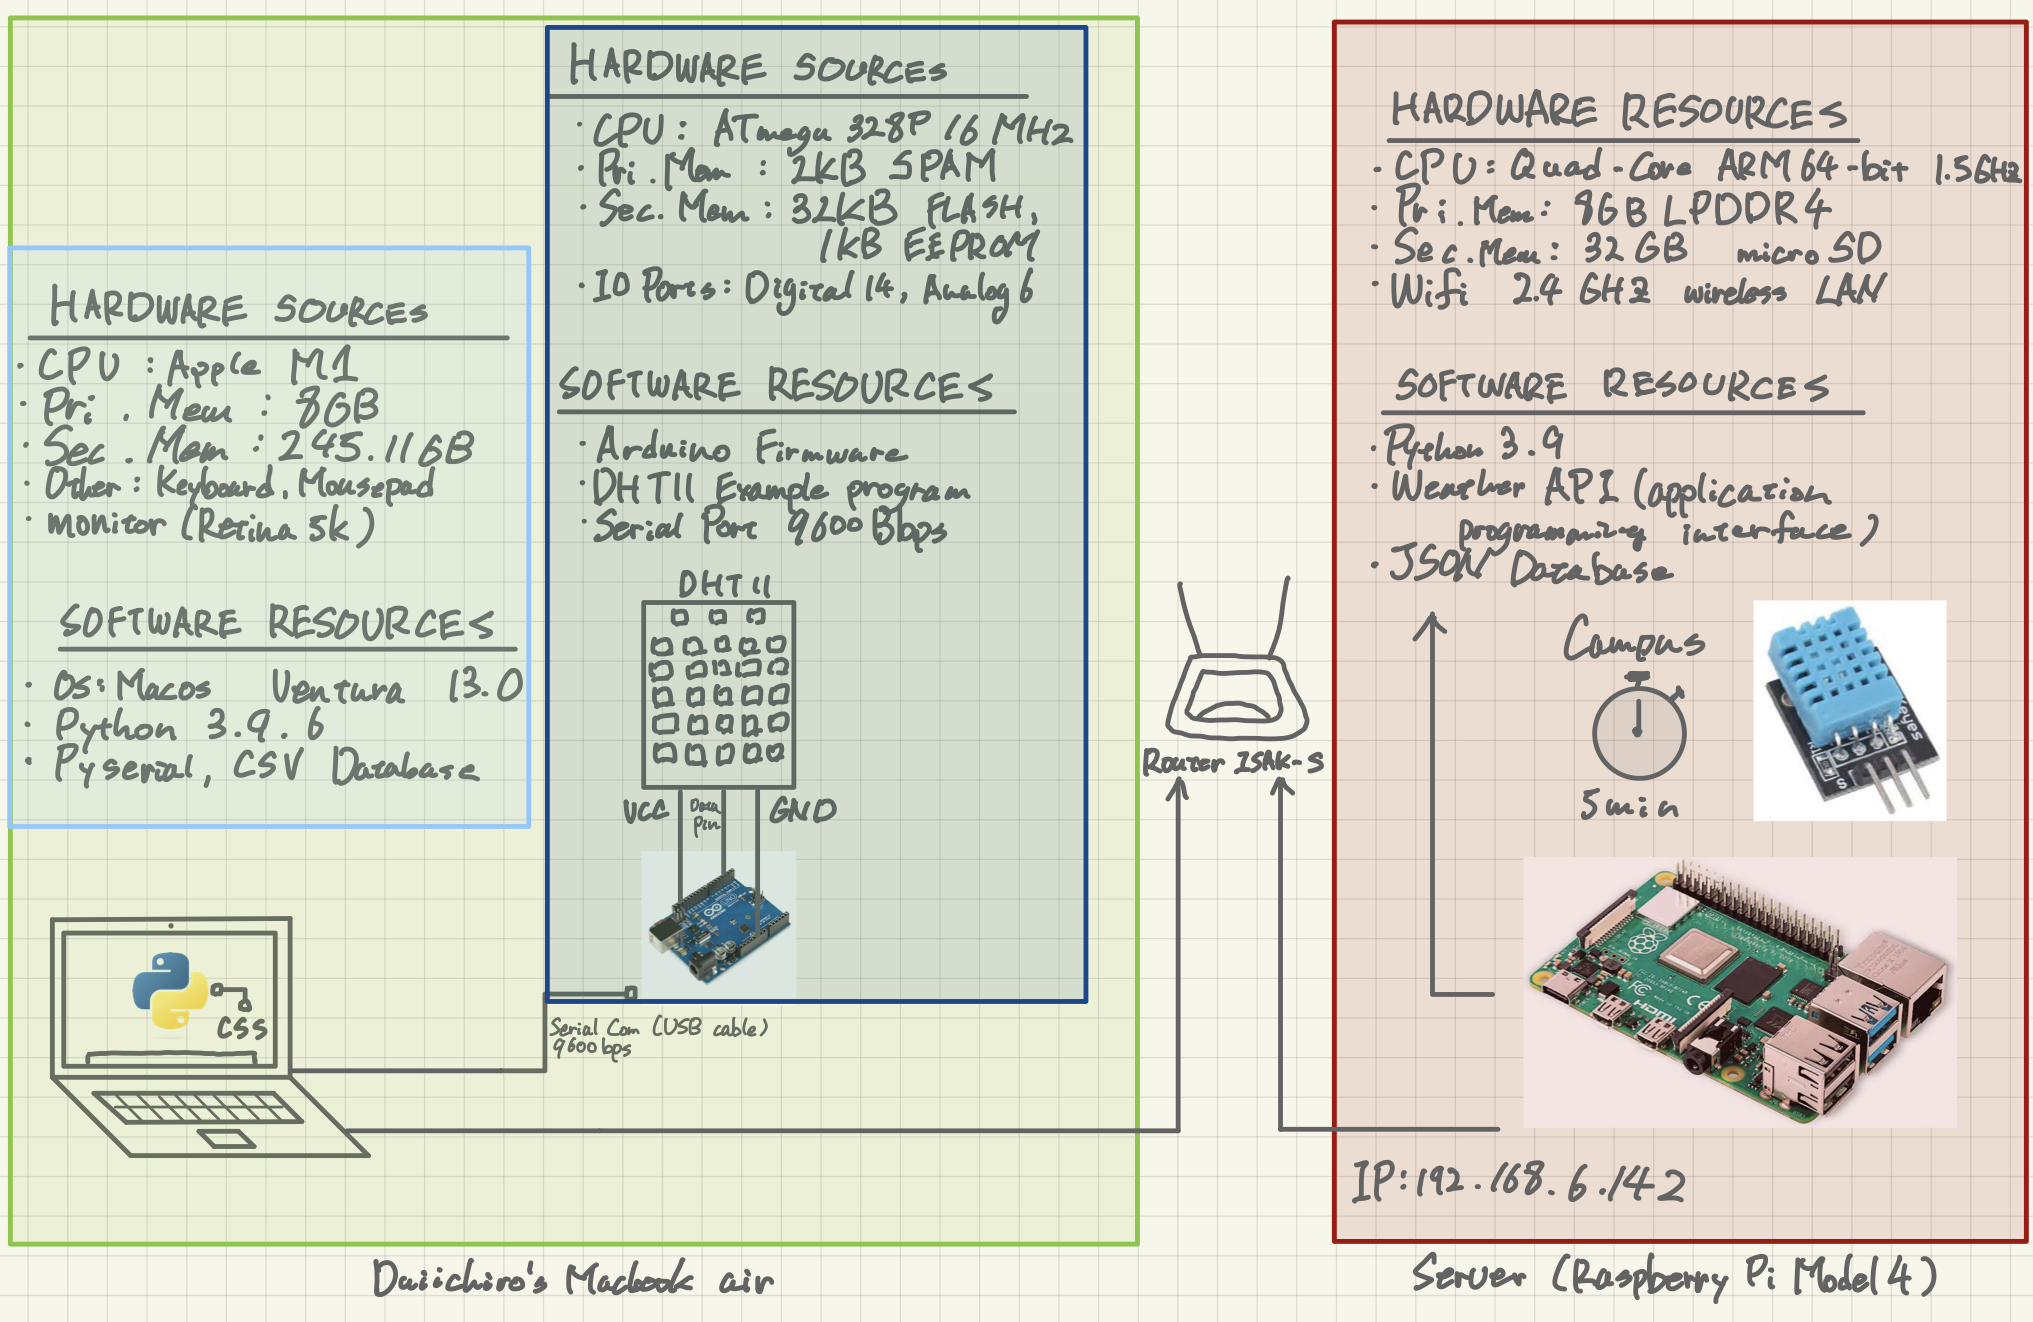 HARDWARE SOURCES
· CPU : Apple M1
· Pri . Mem : 8GB
· Sec . Mem : 245.11GB
· Other : Keyboard, Mousepad
· monitor (Retina 5k)
SOFTWARE RESOURCES
· OS: Macos Ventura 13.0
· Python 3.9.6
· Pyserial, CSV Database
CSS
HARDWARE SOURCES
· CPU : ATmega 328P 16 MHz
· Pri . Mem : 2KB SPAM
· Sec. Mem : 32KB FLASH,
1KB EEPROM
· IO Ports: Digital 14, Analog 6
SOFTWARE RESOURCES
· Arduino Firmware
· DHT11 Example program
· Serial Port 9600 Bbps
DHT 11
VCC
Data
Pin
GND
Serial Com (USB cable)
9600 bps
Router ISAK-S
HARDWARE RESOURCES
· CPU: Quad-Core ARM 64-bit 1.5GHz
· Pri . Mem: 8GB LPDDR4
· Sec . Mem: 32 GB micro SD
· Wifi 2.4 GHz wireless LAN
SOFTWARE RESOURCES
· Python 3.9
· Weather API (application
programming interface)
· JSON Database
Campus
5 min
S
HDMI
FC
CE
IP: 192.168.6.142
Daiichiro's Macbook air
Server (Raspberry Pi Model 4)